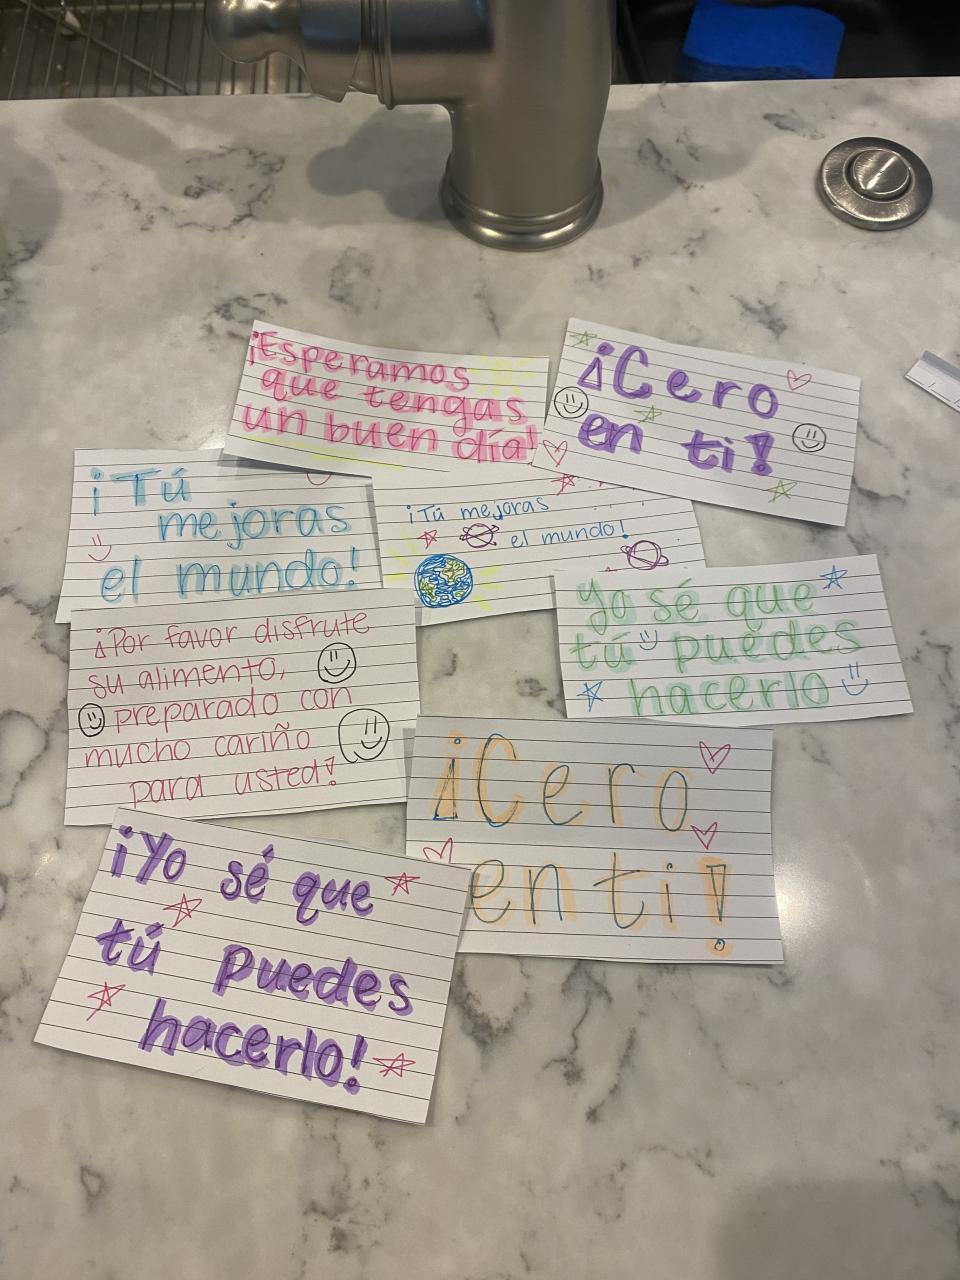 ¡Esperamos
que tengas
un buen día!
¡Cero
en ti!
¡Tú
mejoras
el mundo!
¡Tú mejoras
el mundo!
Yo sé que
tú puedes
hacerlo
¡Por favor disfrute
su alimento,
preparado con
mucho cariño
para usted!
¡Cero
en ti!
¡Yo sé que
tú puedes
hacerlo!